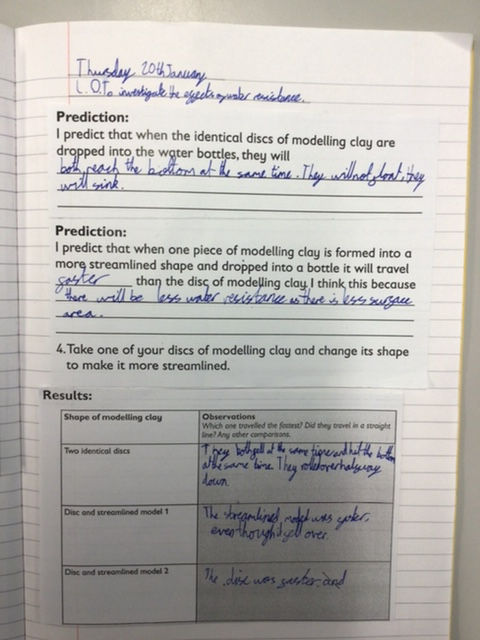 Thursday 20th January
L.O.To investigate the effects of water resistance.
Prediction:
I predict that when the identical discs of modelling clay are
dropped into the water bottles, they will
both reach the bottom at the same time. They will not float, they
will sink.
Prediction:
I predict that when one piece of modelling clay is formed into a
more streamlined shape and dropped into a bottle it will travel
faster than the disc of modelling clay. I think this because
there will be less water resistance as there is less surface
area.
4. Take one of your discs of modelling clay and change its shape
to make it more streamlined.
Results:
Shape of modelling clay
Observations
Which one travelled the fastest? Did they travel in a straight
line? Any other comparisons.
Two identical discs
They both fell at the same time and hit the bottom
at the same time. They rolled over halfway
down.
Disc and streamlined model 1
The streamlined model was faster,
even thought it fell over.
Disc and streamlined model 2
The disc was faster and